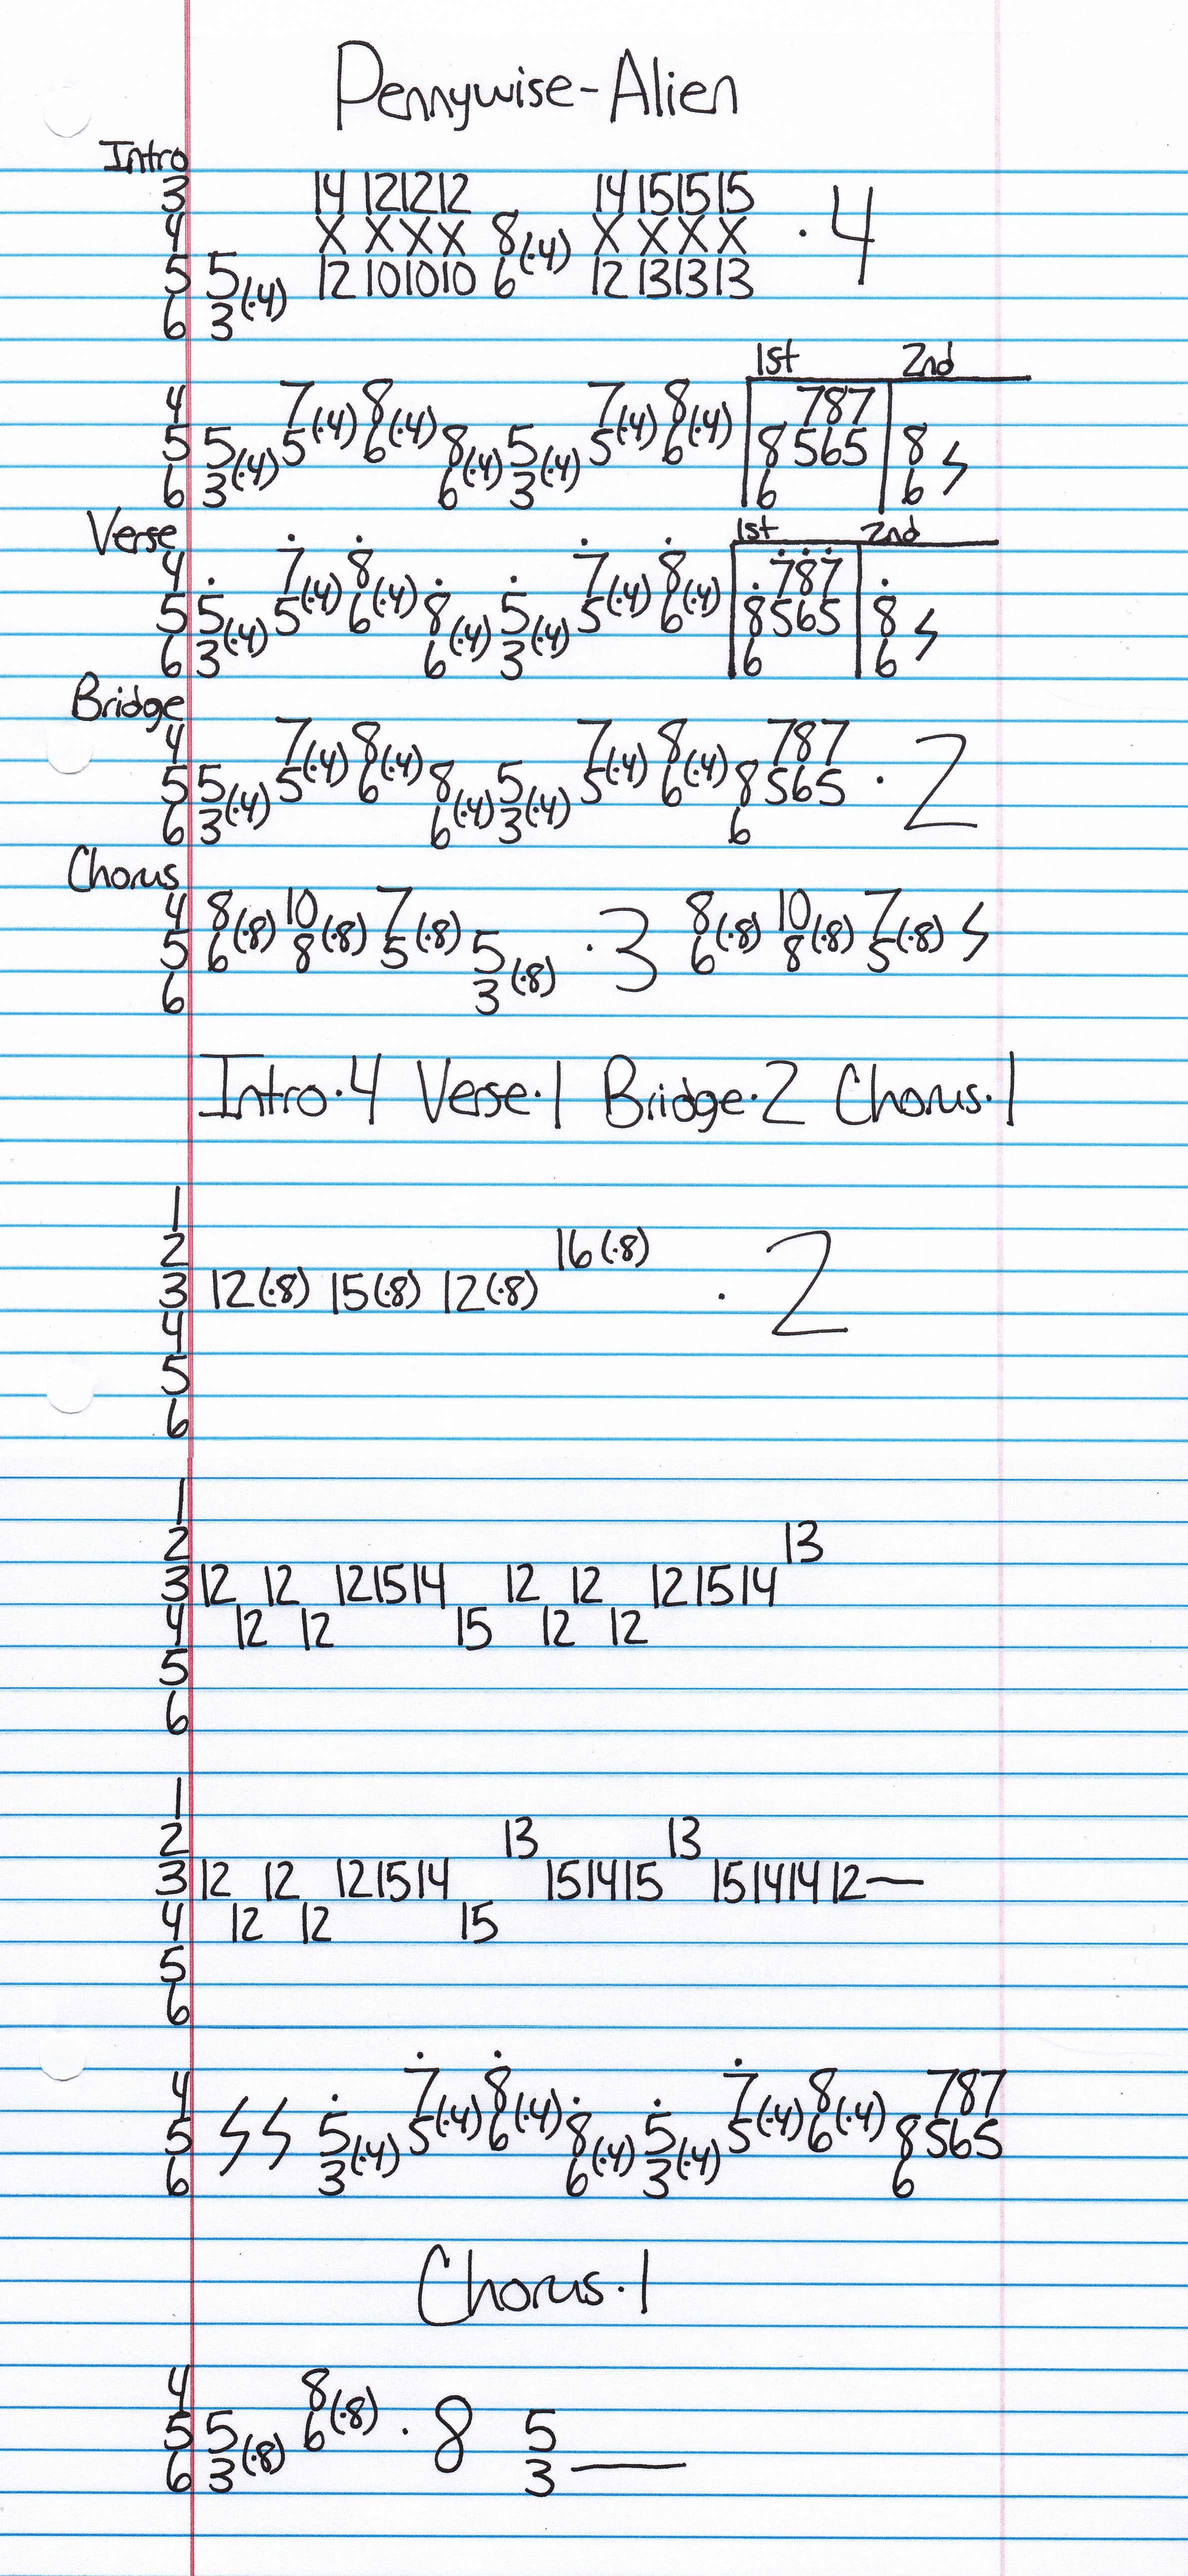 Pennywise-Alien
Intro
3 14 12 12 12 14 15 15 15
4 X X X X 8 (·4) X X X X · 4
5 5 (·4) 12 10 10 10 6 12 13 13 13
6 3
1st 2nd
4 7 (·4) 8 (·4) 7 (·4) 8 (·4) 7 8 7
5 5 (·4) 5 6 8 (·4) 5 (·4) 5 6 8 5 6 5 8
6 3 6 3 6 6
Verse 1st 2nd
4 7 (·4) 8 (·4) 7 (·4) 8 (·4) 7 8 7
5 5 (·4) 5 6 8 (·4) 5 (·4) 5 6 8 5 6 5 8
6 3 6 3 6 6
Bridge
4 7 (·4) 8 (·4) 7 (·4) 8 (·4) 7 8 7
5 5 (·4) 5 6 8 (·4) 5 (·4) 5 6 8 5 6 5 · 2
6 3 6 3 6
Chorus
4 8 (·8) 10 (·8) 7 (·8) 8 (·8) 10 (·8) 7 (·8)
5 6 8 5 5 (·8) · 3 6 8 5
6 3
Intro·4 Verse·1 Bridge·2 Chorus·1
1
2 16 (·8)
3 12 (·8) 15 (·8) 12 (·8) · 2
4
5
6
1
2 13
3 12 12 12 15 14 12 12 12 15 14
4 12 12 15 12 12
5
6
1
2 13 13
3 12 12 12 15 14 15 14 15 15 14 14 12—
4 12 12 15
5
6
4 7 (·4) 8 (·4) 7 (·4) 8 (·4) 7 8 7
5 5 (·4) 5 6 8 (·4) 5 (·4) 5 6 8 5 6 5
6 3 6 3 6
Chorus·1
4 8 (·8)
5 5 (·8) 6 · 8 5
6 3 3 —